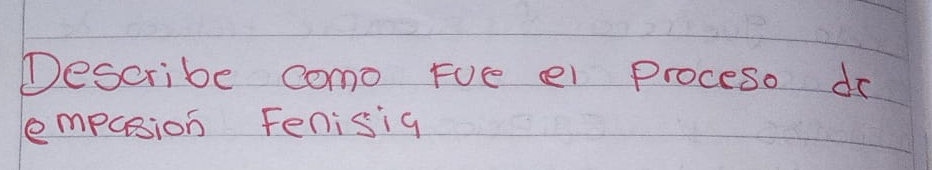 Describe como FUE el Proceso de
empecsion Fenisia